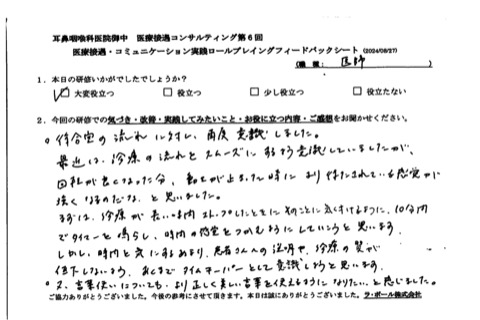 耳鼻咽喉科医院御中　医療接遇コンサルティング第６回
医療接遇・コミュニケーション実践ロールプレイングフィードバックシート（2024/08/27）
（職種： 医師 ）
１．本日の研修いかがでしたでしょうか？
☑大変役立つ　□役立つ　□少し役立つ　□役立たない
２．今回の研修での気づき・改善・実践してみたいこと・お役に立つ内容・ご感想をお聞かせください。
○待合室の流れに対し、再度意識しました。
最近は、診療の流れをスムーズにするよう意識していましたが、
回転が良くなった分、動きが止まった時により待たされている感覚が
強くなるのだな、と思いました。
まずは、診療が長い時間ストップしたときにそのことに気づけるように、10分間
でタイマーを鳴らし、時間の感覚をつかむようにしていこうと思います。
しかし、時間を気にするあまり、患者さんへの説明や、診療の質が
低下しないよう、あくまでタイムキーパーとして意識しようと思います。
○又、言葉使いについても、より正しく美しい言葉を使えるようになりたい、と感じました。
ご協力ありがとうございました。今後の参考にさせて頂きます。本日は誠にありがとうございました。ラ・ポール株式会社